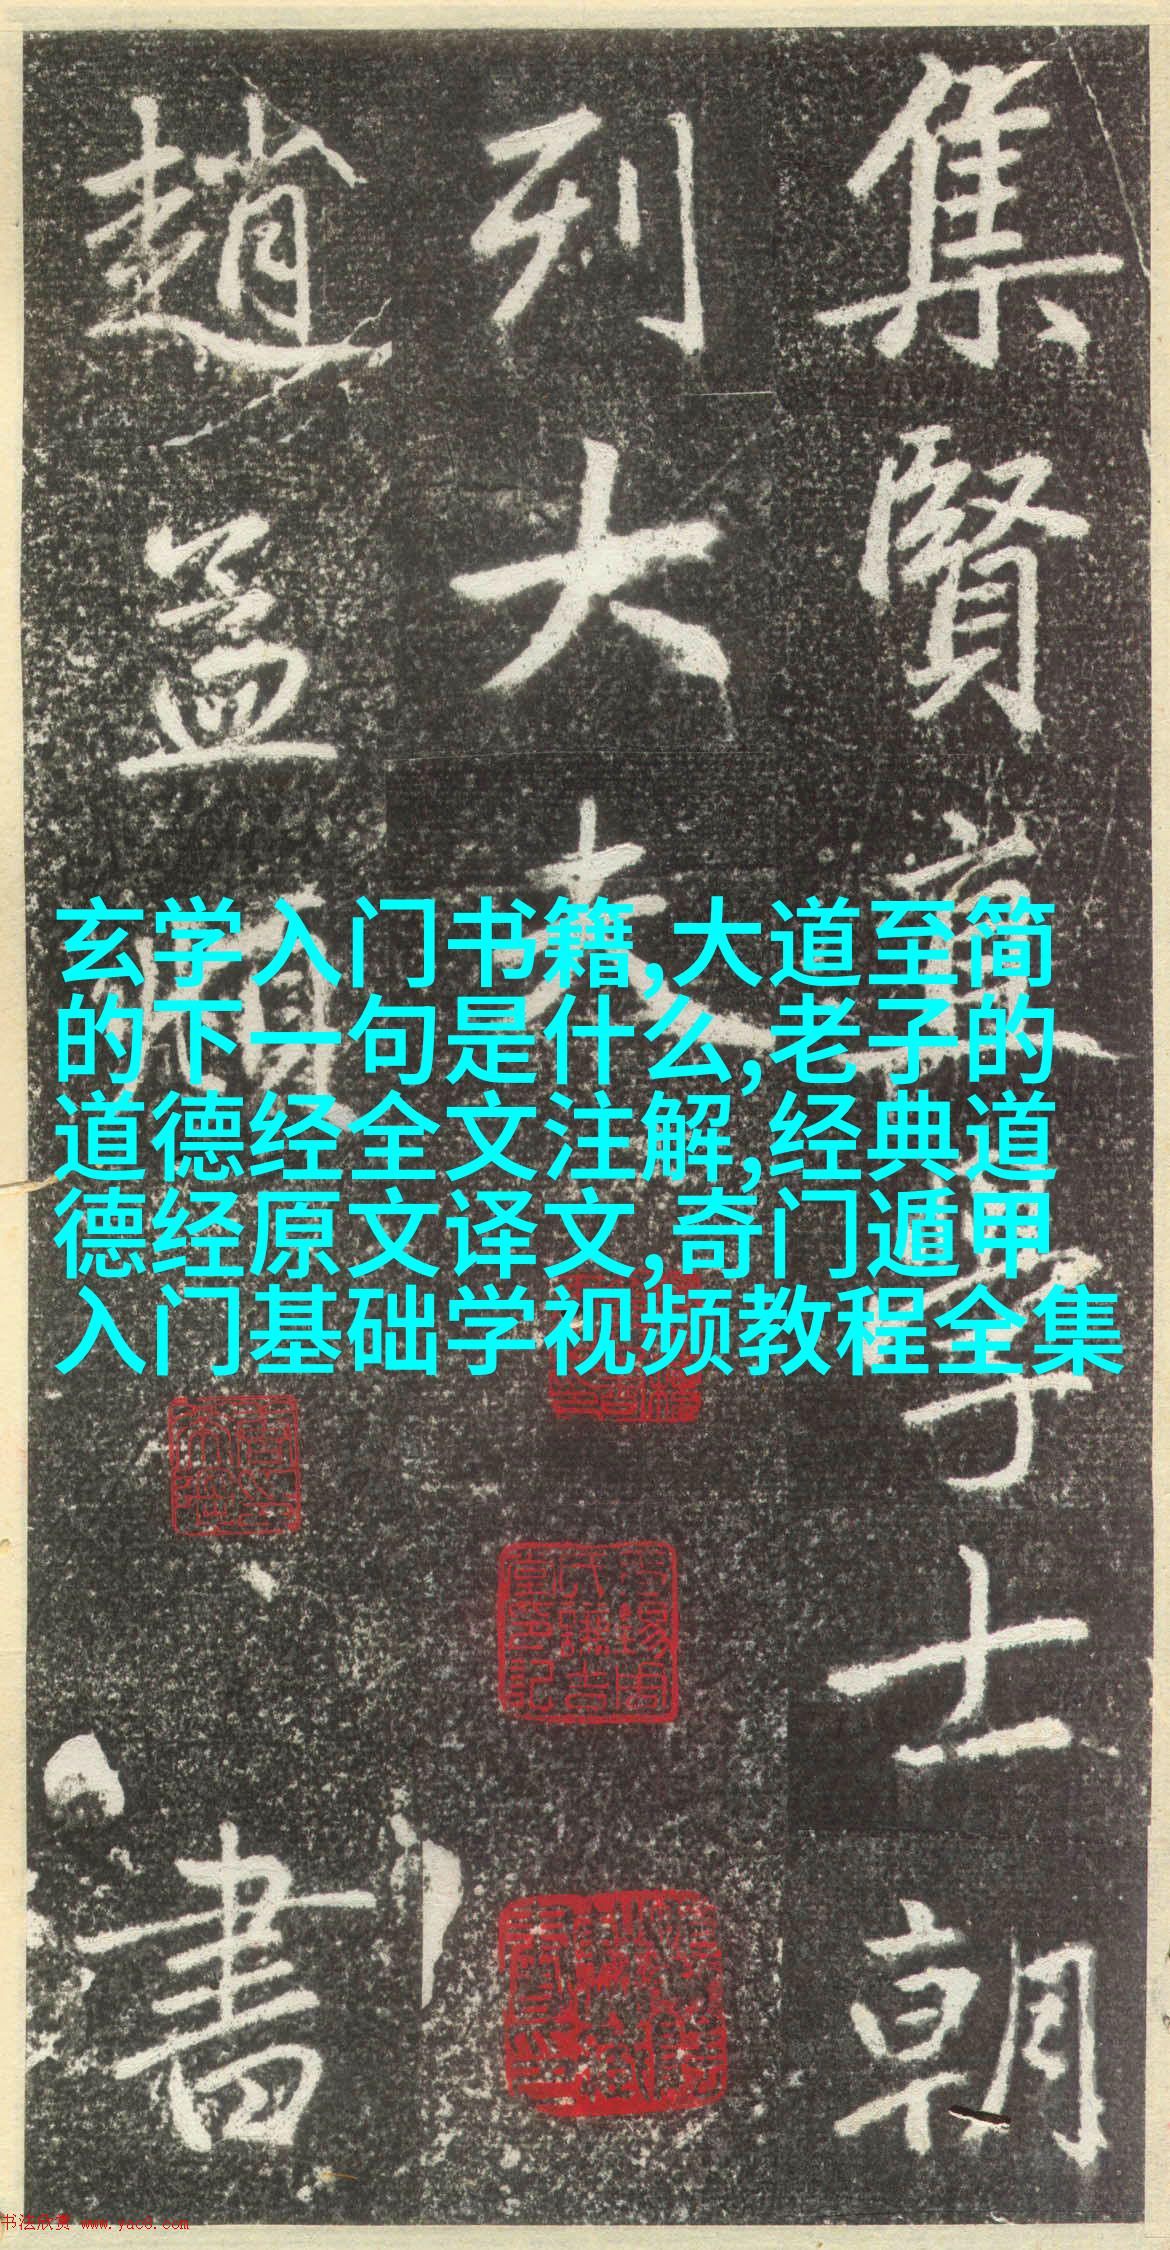 集賢直學士朝
列大夫
趙孟頫書
玄学入门书籍,大道至简
的下一句是什么,老子的
道德经全文注解,经典道
德经原文译文,奇门遁甲
入门基础学视频教程全集
书法欣赏 www.yac8.com